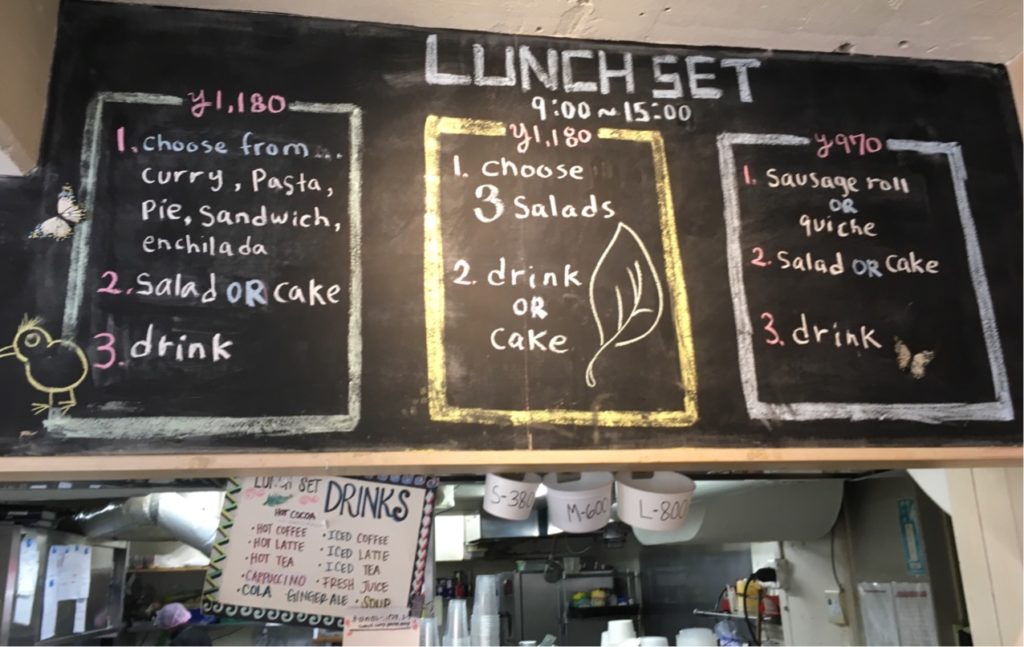 LUNCH SET
9:00~15:00
y1,180
1. choose from...
curry, Pasta,
Pie, Sandwich,
enchilada
2. Salad OR cake
3. drink
y1,180
1. choose
3 Salads
2. drink
OR
cake
y970
1. sausage roll
OR
quiche
2. salad OR cake
3. drink
LUNCH SET
DRINKS
HOT COCOA
• HOT COFFEE
• HOT LATTE
• HOT TEA
• CAPPUCCINO
• COLA GINGER ALE • SOUP
• ICED COFFEE
• ICED LATTE
• ICED TEA
• FRESH JUICE
S-380
M-600
L-800